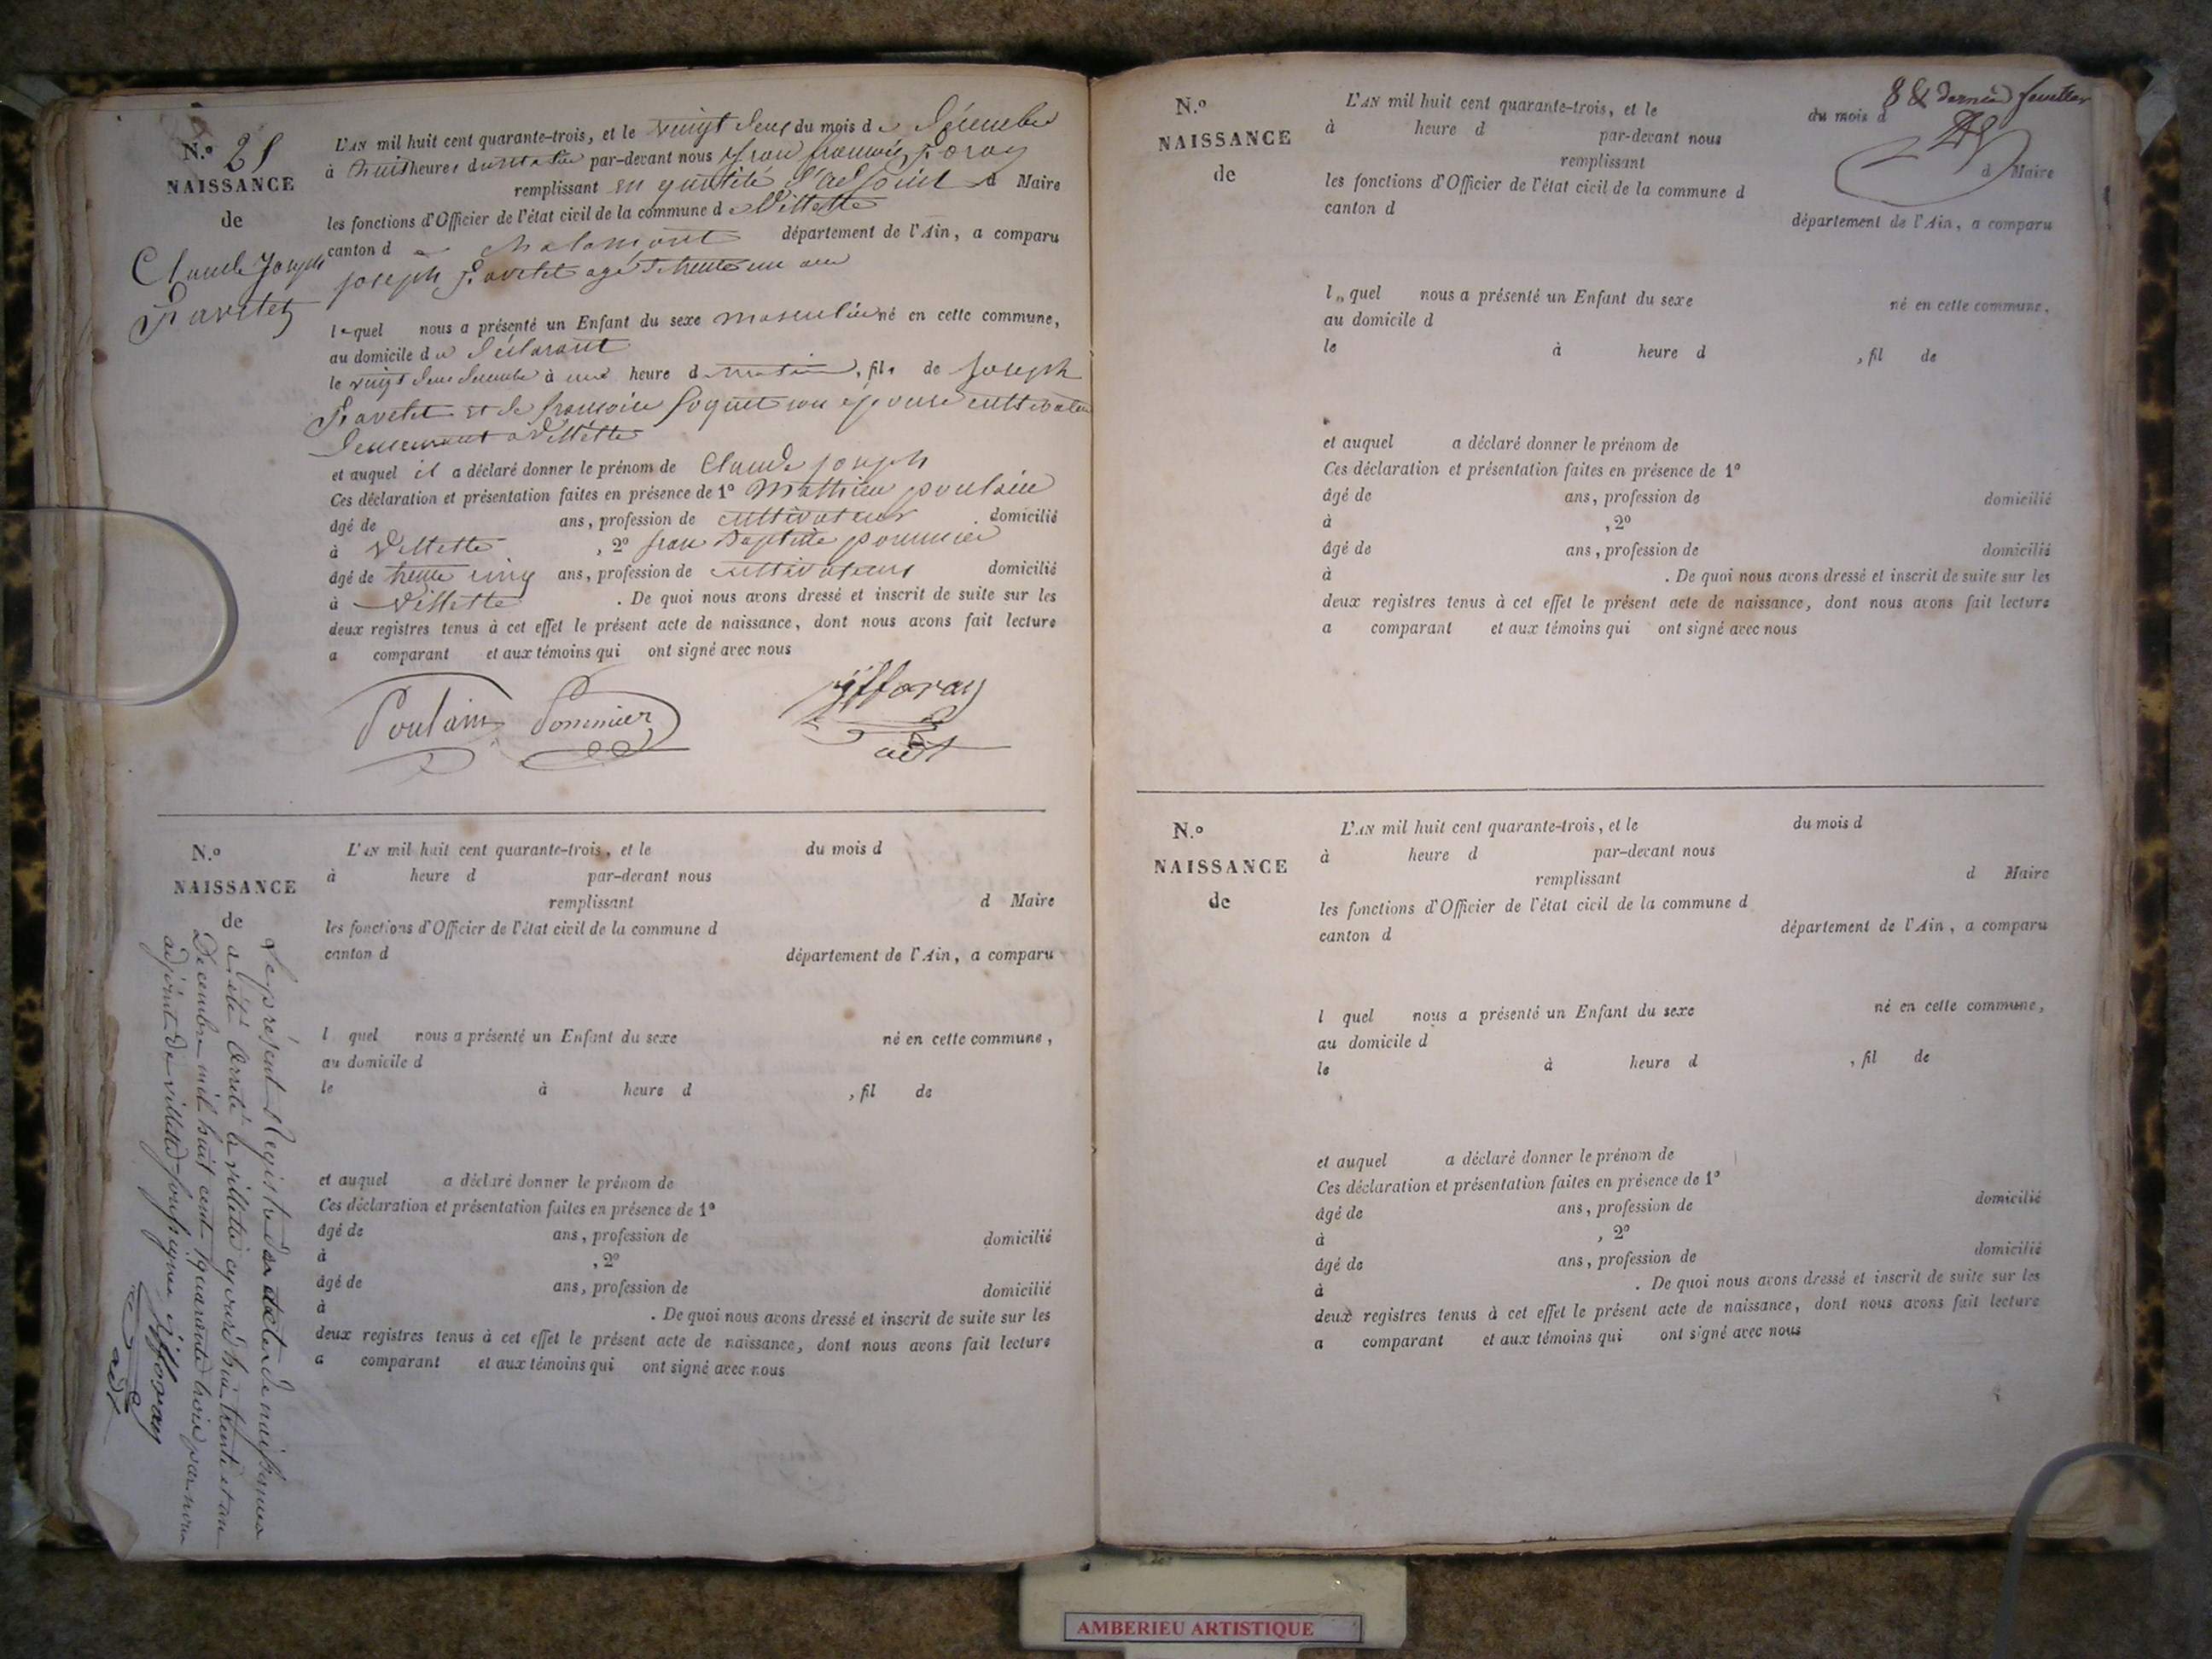 N.º 21
NAISSANCE
de
Claude Joseph
Favetet
L'AN mil huit cent quarante-trois, et le vingt deux du mois de décembre
à huit heures du matin par-devant nous Jean françois foray
remplissant en qualité d'adjoint d Maire
les fonctions d'Officier de l'état civil de la commune de Villette
canton de chalamont département de l'Ain, a comparu
joseph favetet agé de trente un ans
lequel nous a présenté un Enfant du sexe masculin né en cette commune,
au domicile du déclarant
le vingt deux décembre à une heure d matin, fils de joseph
favetet et de françoise son épouse cultivateur
demeurant a Villette
et auquel il a déclaré donner le prénom de Claude joseph
Ces déclaration et présentation faites en présence de 1º Mathieu poulain
âgé de ans, profession de cultivateur domicilié
à Villette, 2º jean Baptiste pommier
âgé de trente cinq ans, profession de cultivateur domicilié
à Villette. De quoi nous avons dressé et inscrit de suite sur les
deux registres tenus à cet effet le présent acte de naissance, dont nous avons fait lecture
a comparant et aux témoins qui ont signé avec nous
Poulain Pommier jfforay
adt
N.º
NAISSANCE
de
L'AN mil huit cent quarante-trois, et le du mois d
à heure d par-devant nous
remplissant d Maire
les fonctions d'Officier de l'état civil de la commune d
canton d département de l'Ain, a comparu
l quel nous a présenté un Enfant du sexe né en cette commune,
au domicile d
le à heure d , fil de
et auquel a déclaré donner le prénom de
Ces déclaration et présentation faites en présence de 1º
âgé de ans, profession de domicilié
à , 2º
âgé de ans, profession de domicilié
à . De quoi nous avons dressé et inscrit de suite sur les
deux registres tenus à cet effet le présent acte de naissance, dont nous avons fait lecture
a comparant et aux témoins qui ont signé avec nous
Le présent Registre des actes de naissances
a été arrété a villette cejourd'hui trente et un
Décembre mil huit cent quarante trois par nous
adjoint de villette soussigné jfforay
adt
8 & dernier feuillet
N.º
NAISSANCE
de
L'AN mil huit cent quarante-trois, et le du mois d
à heure d par-devant nous
remplissant d Maire
les fonctions d'Officier de l'état civil de la commune d
canton d département de l'Ain, a comparu
l quel nous a présenté un Enfant du sexe né en cette commune,
au domicile d
le à heure d , fil de
et auquel a déclaré donner le prénom de
Ces déclaration et présentation faites en présence de 1º
âgé de ans, profession de domicilié
à , 2º
âgé de ans, profession de domicilié
à . De quoi nous avons dressé et inscrit de suite sur les
deux registres tenus à cet effet le présent acte de naissance, dont nous avons fait lecture
a comparant et aux témoins qui ont signé avec nous
N.º
NAISSANCE
de
L'AN mil huit cent quarante-trois, et le du mois d
à heure d par-devant nous
remplissant d Maire
les fonctions d'Officier de l'état civil de la commune d
canton d département de l'Ain, a comparu
l quel nous a présenté un Enfant du sexe né en cette commune,
au domicile d
le à heure d , fil de
et auquel a déclaré donner le prénom de
Ces déclaration et présentation faites en présence de 1º
âgé de ans, profession de domicilié
à , 2º
âgé de ans, profession de domicilié
à . De quoi nous avons dressé et inscrit de suite sur les
deux registres tenus à cet effet le présent acte de naissance, dont nous avons fait lecture
a comparant et aux témoins qui ont signé avec nous
AMBERIEU ARTISTIQUE